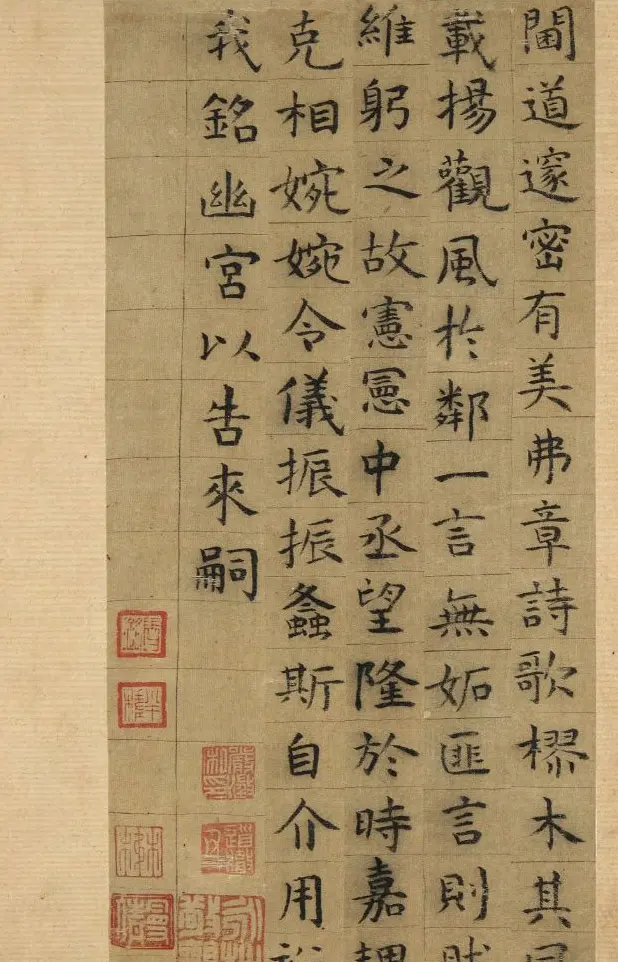 閫道邃密有美弗章詩歌樛木其
載揚觀風於鄰一言無妬匪言則
維躬之故憲憲中丞望隆於時嘉
克相婉婉令儀振振螽斯自介用
我銘幽宮以告來嗣